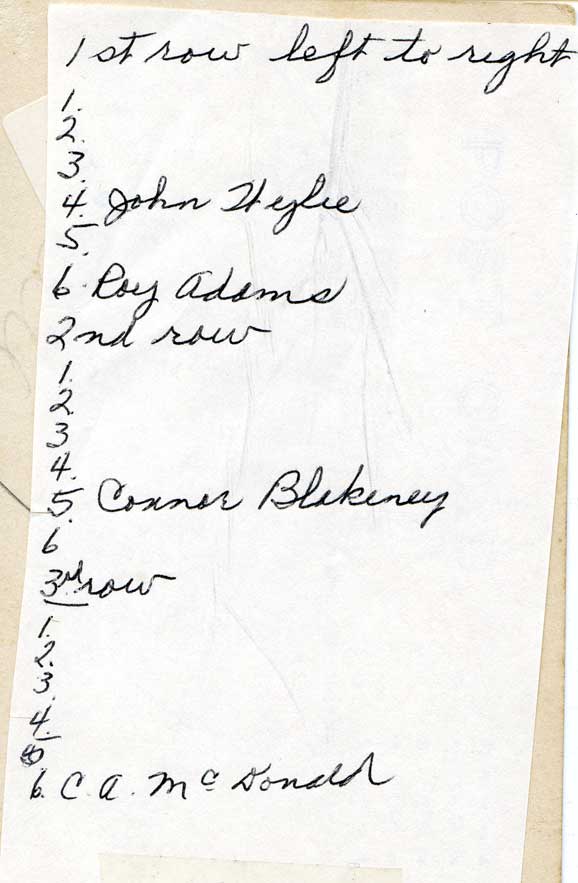 1st row left to right
1.
2.
3.
4. John Wylie
5.
6. Roy Adams
2nd row
1.
2.
3
4.
5. Connor Blakeney
6
3rd row
1.
2.
3.
4.
5
6. C. A. McDonald